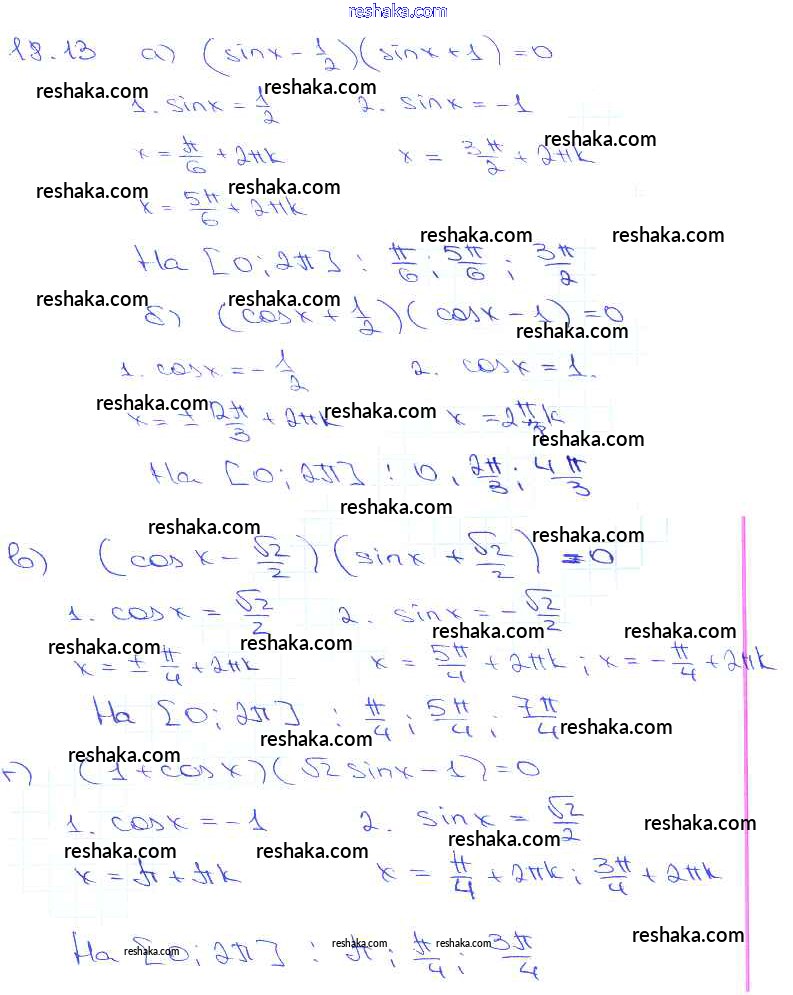 reshaka.com
18.13 а) (sinx - 1/2)(sinx + 1) = 0
reshaka.com
1. sinx = 1/2 2. sinx = -1
reshaka.com
x = π/6 + 2πk x = 3π/2 + 2πk
reshaka.com reshaka.com
x = 5π/6 + 2πk
reshaka.com reshaka.com
На [0; 2π] : π/6; 5π/6; 3π/2
reshaka.com reshaka.com
б) (cosx + 1/2)(cosx - 1) = 0
reshaka.com
1. cosx = -1/2 2. cosx = 1.
reshaka.com reshaka.com
x = ± 2π/3 + 2πk x = 2πk
reshaka.com
На [0; 2π] : 0, 2π/3; 4π/3
reshaka.com
reshaka.com reshaka.com
в) (cosx - √2/2)(sinx + √2/2) = 0
1. cosx = √2/2 2. sinx = -√2/2
reshaka.com reshaka.com reshaka.com
x = ± π/4 + 2πk x = 5π/4 + 2πk; x = -π/4 + 2πk
На [0; 2π] : π/4; 5π/4; 7π/4
reshaka.com reshaka.com
reshaka.com
г) (1 + cosx)(√2 sinx - 1) = 0
1. cosx = -1 2. sinx = √2/2
reshaka.com reshaka.com
reshaka.com reshaka.com
x = π + πk x = π/4 + 2πk; 3π/4 + 2πk
reshaka.com
На [0; 2π] : π; π/4; 3π/4
reshaka.com reshaka.com reshaka.com